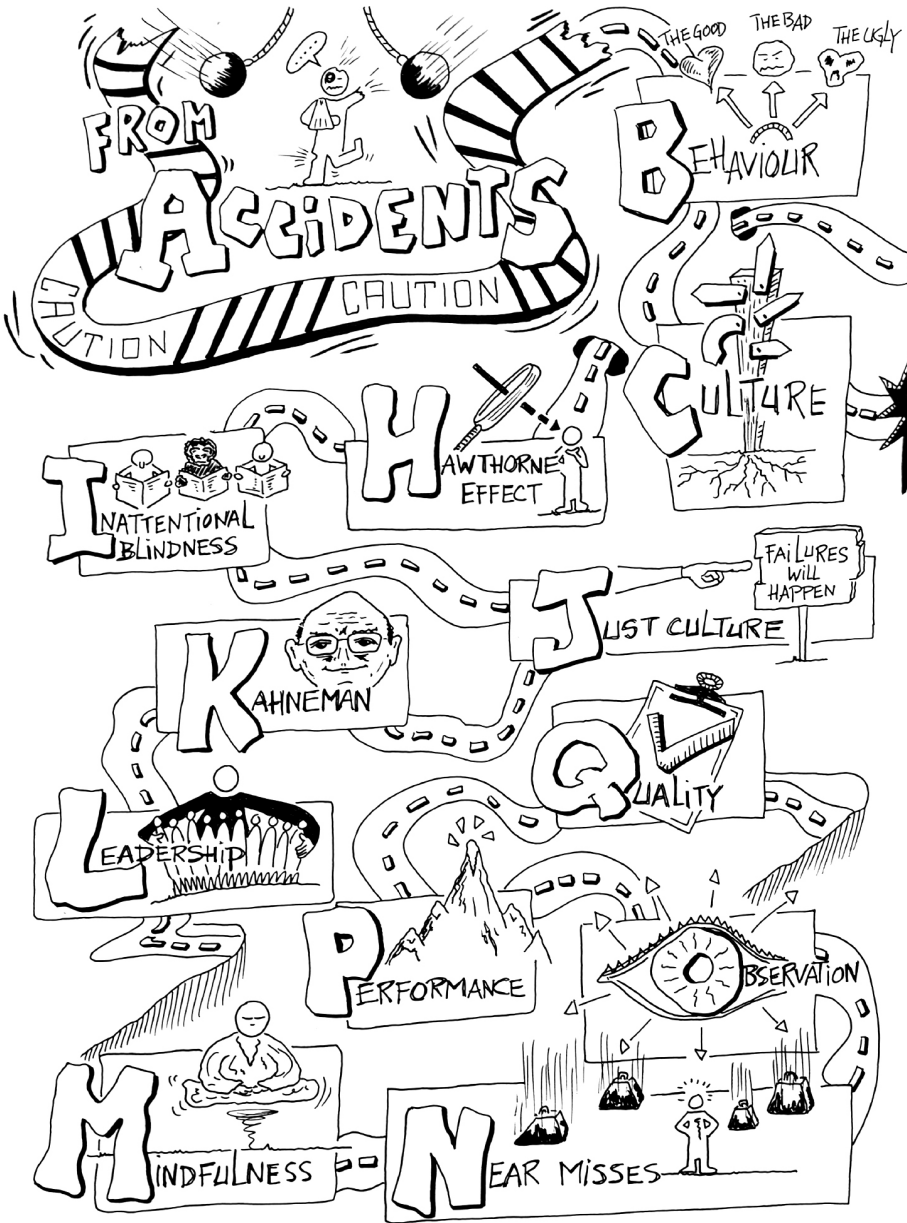 FROM
ACCIDENTS
CAUTION
CAUTION
THE GOOD
THE BAD
THE UGLY
BEHAVIOUR
CULTURE
HAWTHORNE
EFFECT
INATTENTIONAL
BLINDNESS
FAILURES
WILL
HAPPEN
JUST CULTURE
KAHNEMAN
LEADERSHIP
QUALITY
PERFORMANCE
OBSERVATION
MINDFULNESS
NEAR MISSES